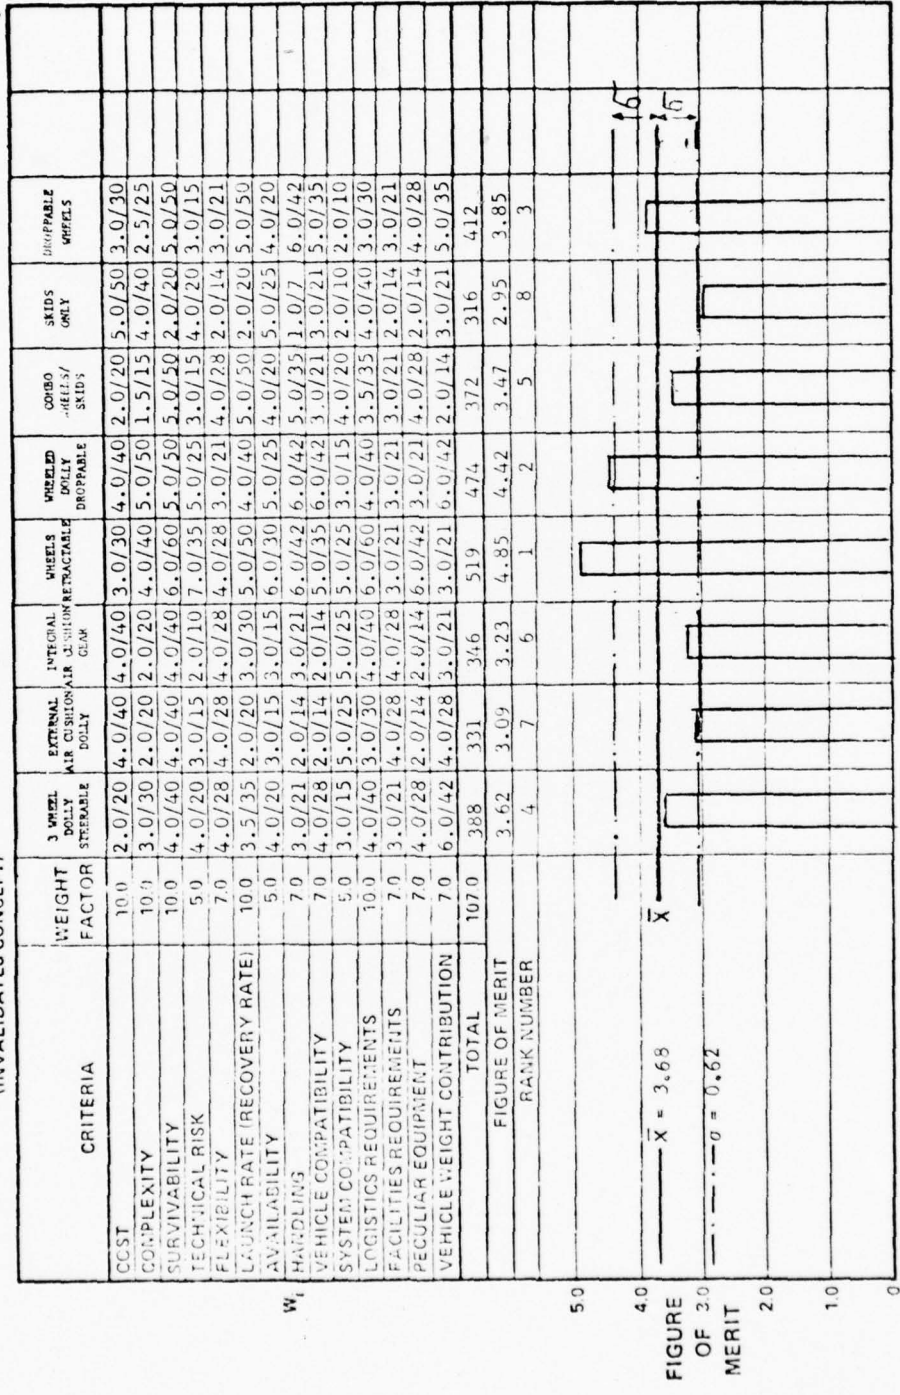 CRITERIA WEIGHT FACTOR 3 WHEEL DOLLY STEERABLE EXTERNAL AIR CUSHION DOLLY INTEGRAL AIR CUSHION GEAR WHEELS RETRACTABLE WHEELED DOLLY DROPPABLE COMBO WHEELS/ SKIDS SKIDS ONLY DROPPABLE WHEELS
COST 10.0 2.0/20 4.0/40 4.0/40 3.0/30 4.0/40 2.0/20 5.0/50 3.0/30
COMPLEXITY 10.0 3.0/30 2.0/20 2.0/20 4.0/40 5.0/50 1.5/15 4.0/40 2.5/25
SURVIVABILITY 10.0 4.0/40 4.0/40 4.0/40 6.0/60 5.0/50 5.0/50 2.0/20 5.0/50
TECHNICAL RISK 5.0 4.0/20 3.0/15 2.0/10 7.0/35 5.0/25 3.0/15 4.0/20 3.0/15
FLEXIBILITY 7.0 4.0/28 4.0/28 4.0/28 4.0/28 3.0/21 4.0/28 2.0/14 3.0/21
LAUNCH RATE (RECOVERY RATE) 10.0 3.5/35 2.0/20 3.0/30 5.0/50 4.0/40 5.0/50 2.0/20 5.0/50
AVAILABILITY 5.0 4.0/20 3.0/15 3.0/15 6.0/30 5.0/25 4.0/20 5.0/25 4.0/20
Wi HANDLING 7.0 3.0/21 2.0/14 3.0/21 6.0/42 6.0/42 5.0/35 1.0/7 6.0/42
VEHICLE COMPATIBILITY 7.0 4.0/28 2.0/14 2.0/14 5.0/35 6.0/42 3.0/21 3.0/21 5.0/35
SYSTEM COMPATIBILITY 5.0 3.0/15 5.0/25 5.0/25 5.0/25 3.0/15 4.0/20 2.0/10 2.0/10
LOGISTICS REQUIREMENTS 10.0 4.0/40 3.0/30 4.0/40 6.0/60 4.0/40 3.5/35 4.0/40 3.0/30
FACILITIES REQUIREMENTS 7.0 3.0/21 4.0/28 4.0/28 3.0/21 3.0/21 3.0/21 2.0/14 3.0/21
PECULIAR EQUIPMENT 7.0 4.0/28 2.0/14 2.0/14 6.0/42 3.0/21 4.0/28 2.0/14 4.0/28
VEHICLE WEIGHT CONTRIBUTION 7.0 6.0/42 4.0/28 3.0/21 3.0/21 6.0/42 2.0/14 3.0/21 5.0/35
TOTAL 107.0 388 331 346 519 474 372 316 412
FIGURE OF MERIT 3.62 3.09 3.23 4.85 4.42 3.47 2.95 3.85
RANK NUMBER 4 7 6 1 2 5 8 3
FIGURE OF MERIT
5.0
4.0
3.0
2.0
1.0
0
X̄ = 3.68
σ = 0.62
X̄
1σ
1σ